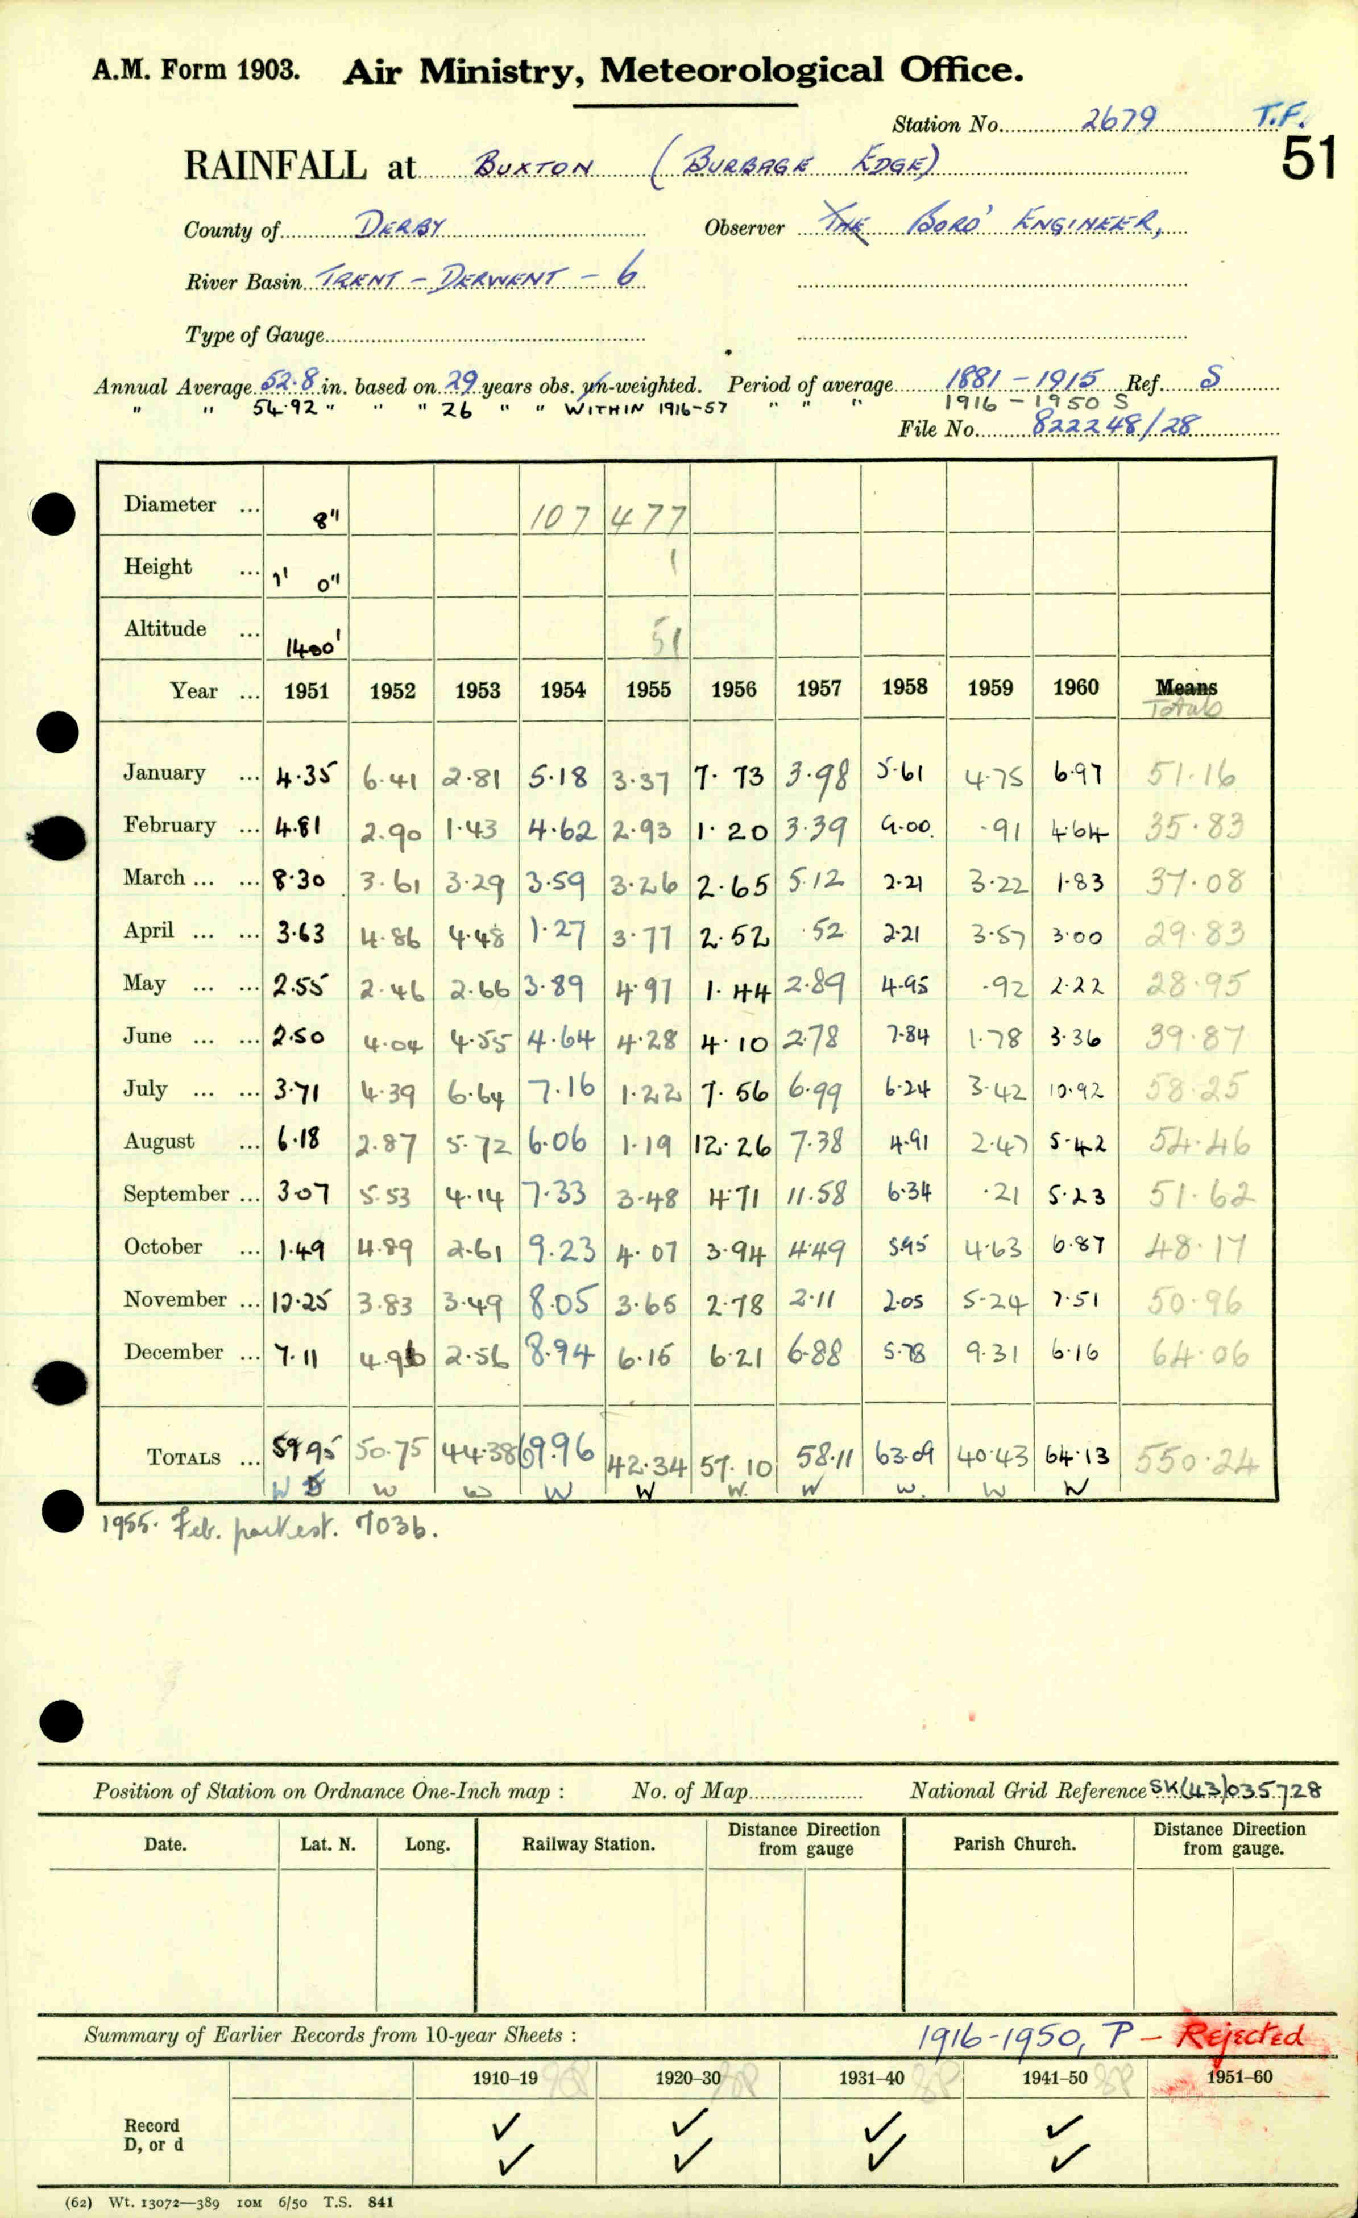 A.M. Form 1903. Air Ministry, Meteorological Office.
Station No. 2679 T.F.
51
RAINFALL at BUXTON (BURBAGE EDGE)
County of DERBY Observer THE BORO' ENGINEER,
River Basin TRENT - DERWENT - 6
Type of Gauge
Annual Average 52.8 in. based on 29 years obs. un-weighted. Period of average 1881 - 1915 Ref. S
" " 54.92 " " " 26 " " WITHIN 1916-57 " " " 1916 - 1950 S
File No. 822248/28
Diameter ... 8" 107 477
Height ... 1' 0" 1
Altitude ... 1400' 51
Year ... 1951 1952 1953 1954 1955 1956 1957 1958 1959 1960 Means
Totals
January ... 4.35 6.41 2.81 5.18 3.37 7.73 3.98 5.61 4.75 6.97 51.16
February ... 4.81 2.90 1.43 4.62 2.93 1.20 3.39 9.00 .91 4.64 35.83
March ... ... 8.30 3.61 3.29 3.59 3.26 2.65 5.12 2.21 3.22 1.83 37.08
April ... ... 3.63 4.86 4.48 1.27 3.77 2.52 .52 2.21 3.57 3.00 29.83
May ... ... 2.55 2.46 2.66 3.89 4.97 1.44 2.89 4.95 .92 2.22 28.95
June ... ... 2.50 4.04 4.55 4.64 4.28 4.10 2.78 7.84 1.78 3.36 39.87
July ... ... 3.71 4.39 6.64 7.16 1.22 7.56 6.99 6.24 3.42 10.92 58.25
August ... 6.18 2.87 5.72 6.06 1.19 12.26 7.38 4.91 2.47 5.42 54.46
September ... 3.07 5.53 4.14 7.33 3.48 4.71 11.58 6.34 .21 5.23 51.62
October ... 1.49 4.89 2.61 9.23 4.07 3.94 4.49 5.95 4.63 6.87 48.17
November ... 12.25 3.83 3.49 8.05 3.65 2.78 2.11 2.05 5.24 7.51 50.96
December ... 7.11 4.96 2.56 8.94 6.15 6.21 6.88 5.78 9.31 6.16 64.06
TOTALS ... 59.95 50.75 44.38 69.96 42.34 57.10 58.11 63.09 40.43 64.13 550.24
W W W W W W. W W. W W
1955. Feb. part est. 7036.
Position of Station on Ordnance One-Inch map : No. of Map National Grid Reference SK(43)035728
Date. Lat. N. Long. Railway Station. Distance from Direction gauge Parish Church. Distance from Direction gauge.
Summary of Earlier Records from 10-year Sheets : 1916-1950, P - Rejected
1910–19 1920–30 1931–40 1941–50 1951–60
Record ✓ ✓ ✓ ✓
D, or d ✓ ✓ ✓ ✓
(62) Wt. 13072—389 10M 6/50 T.S. 841